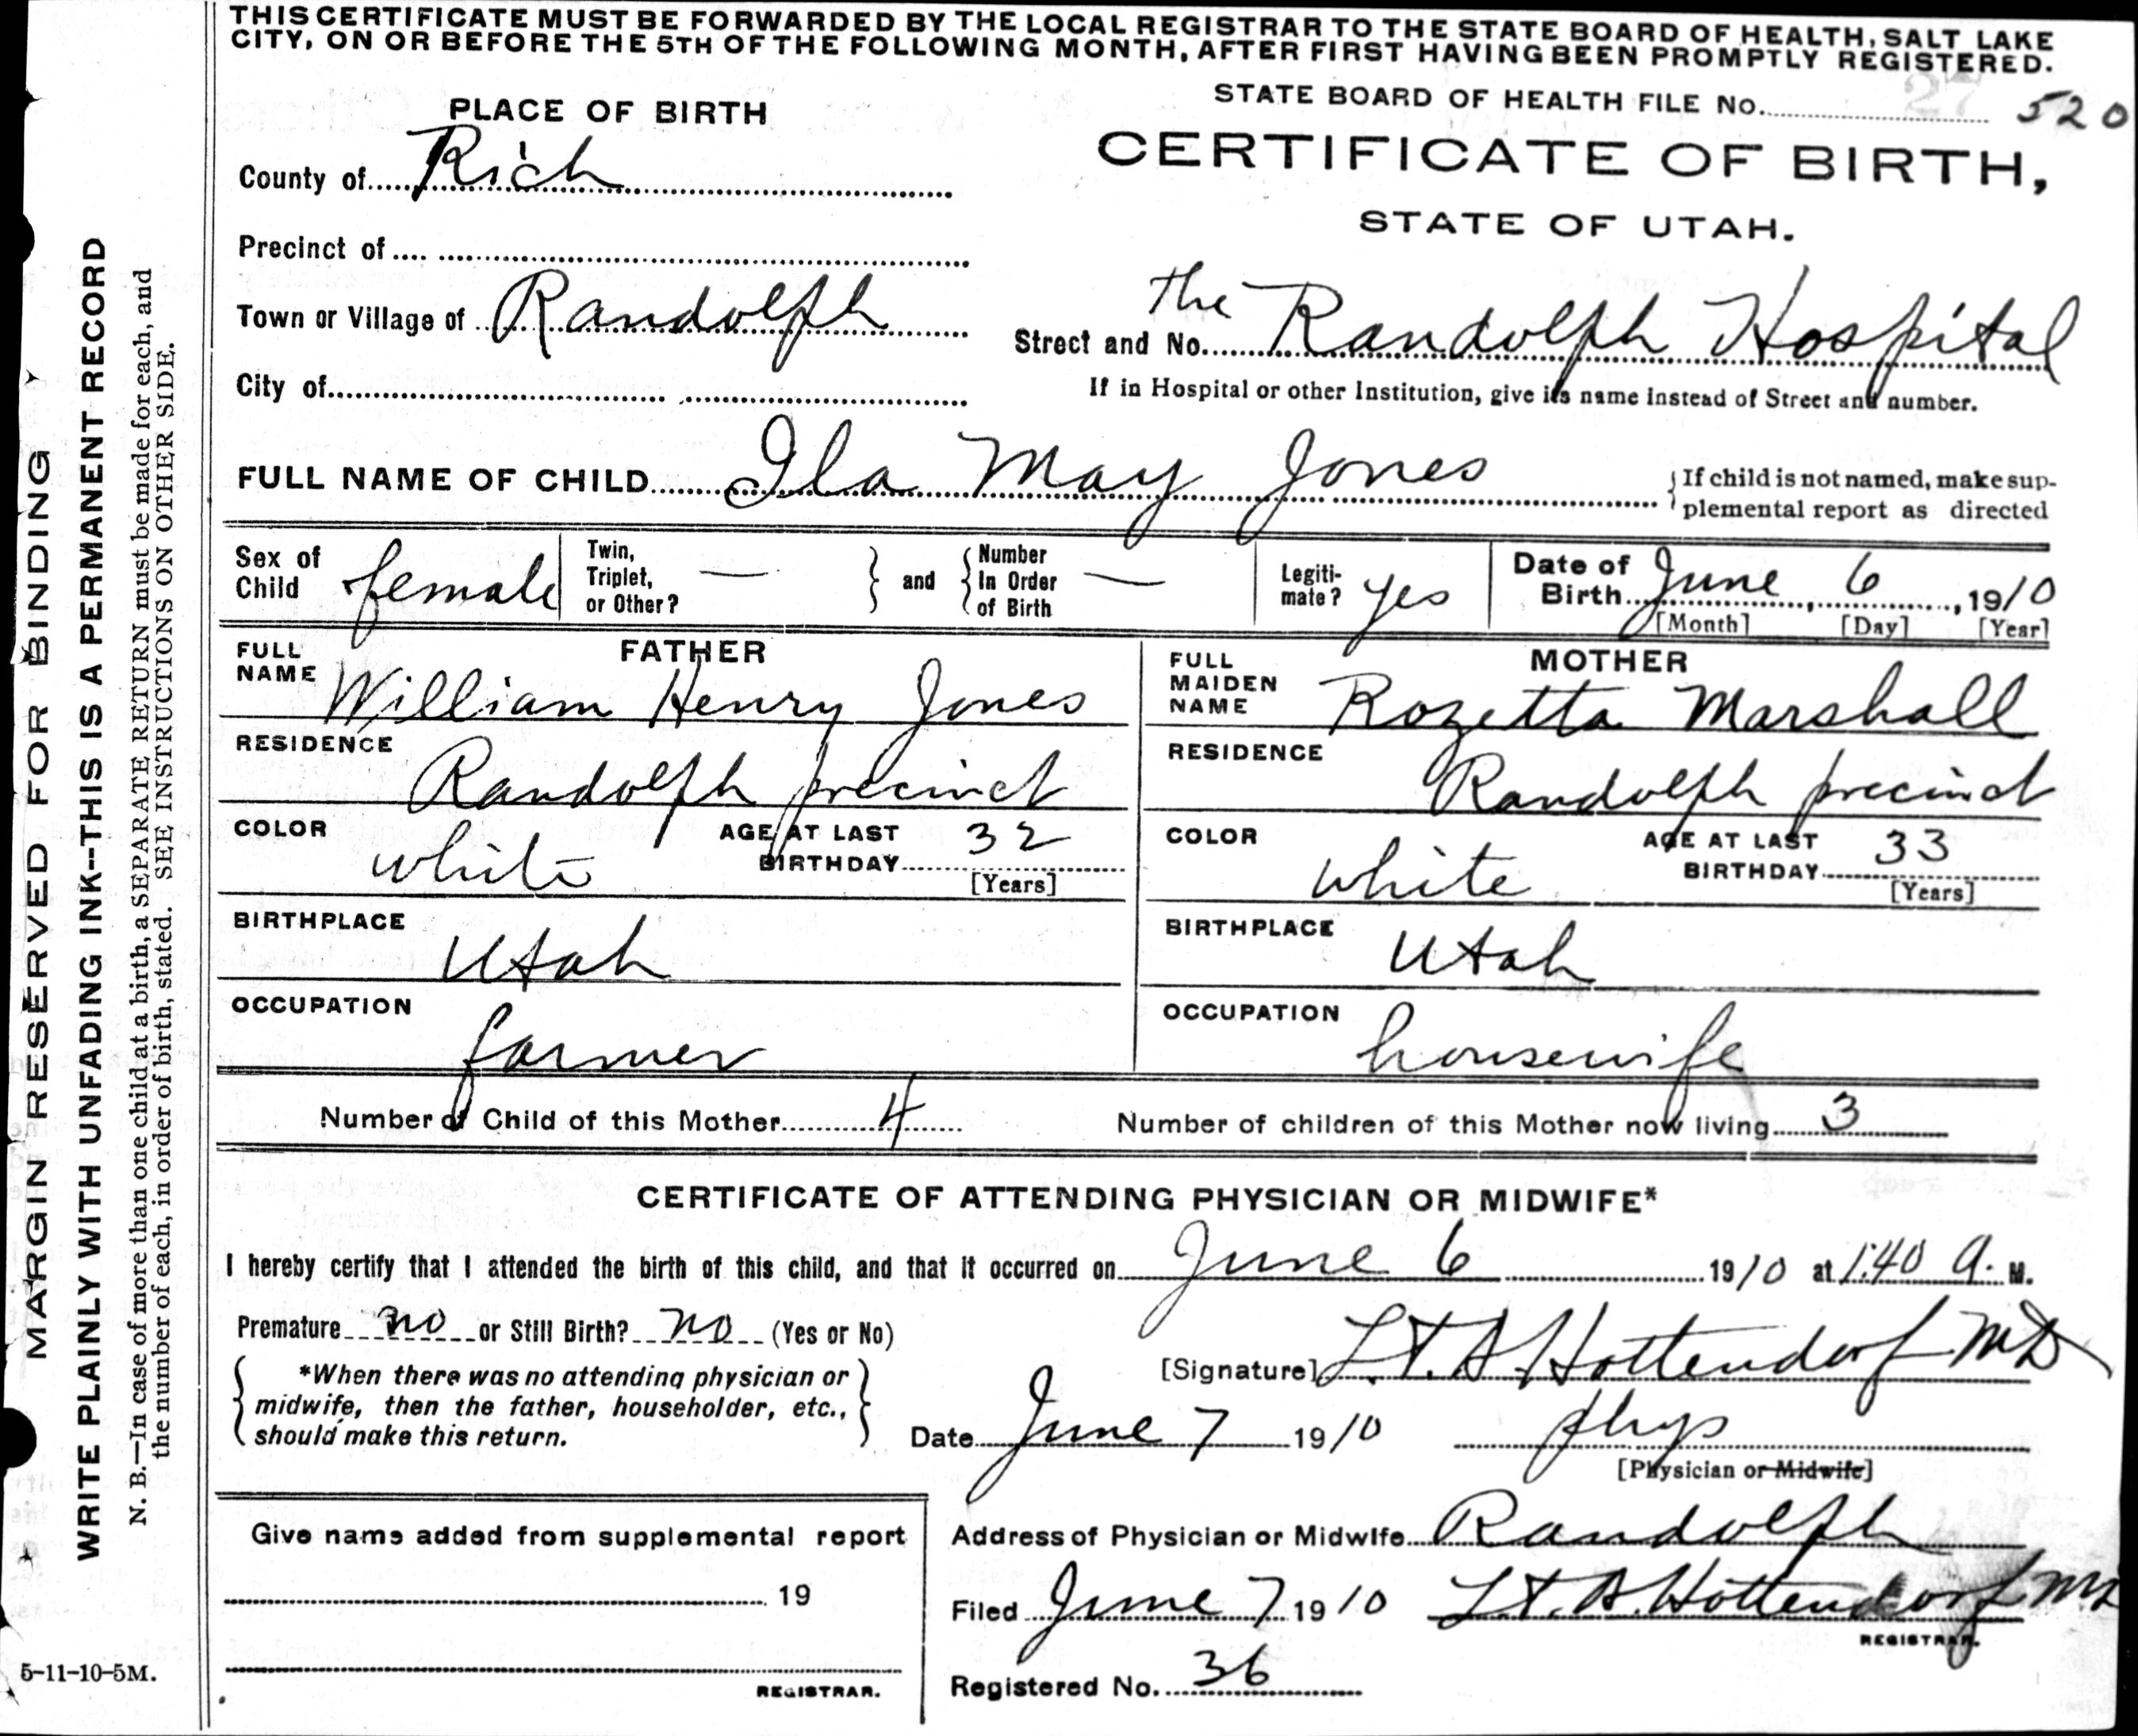 THIS CERTIFICATE MUST BE FORWARDED BY THE LOCAL REGISTRAR TO THE STATE BOARD OF HEALTH, SALT LAKE
CITY, ON OR BEFORE THE 5TH OF THE FOLLOWING MONTH, AFTER FIRST HAVING BEEN PROMPTLY REGISTERED.
STATE BOARD OF HEALTH FILE No. 27 520
PLACE OF BIRTH
CERTIFICATE OF BIRTH,
County of Rich
STATE OF UTAH.
Precinct of
Town or Village of Randolph
Street and No. The Randolph Hospital
City of
If in Hospital or other Institution, give its name instead of Street and number.
FULL NAME OF CHILD Ila May Jones
If child is not named, make sup-
plemental report as directed
Sex of
Child female
Twin,
Triplet, —
or Other?
and
Number
In Order —
of Birth
Legiti-
mate? yes
Date of
Birth June 6, 1910
[Month] [Day] [Year]
FATHER
FULL
NAME William Henry Jones
RESIDENCE
Randolph precinct
COLOR white
AGE AT LAST
BIRTHDAY 32
[Years]
BIRTHPLACE
Utah
OCCUPATION
farmer
MOTHER
FULL
MAIDEN
NAME Rozetta Marshall
RESIDENCE
Randolph precinct
COLOR white
AGE AT LAST
BIRTHDAY 33
[Years]
BIRTHPLACE
Utah
OCCUPATION
housewife
Number of Child of this Mother 4 Number of children of this Mother now living 3
CERTIFICATE OF ATTENDING PHYSICIAN OR MIDWIFE*
I hereby certify that I attended the birth of this child, and that it occurred on June 6 1910 at 1:40 A. M.
Premature no or Still Birth? no (Yes or No)
[Signature] Hottendorf MD
*When there was no attending physician or
midwife, then the father, householder, etc.,
should make this return.
Date June 7 1910 phys
[Physician or Midwife]
Give name added from supplemental report
19
REGISTRAR.
Address of Physician or Midwife Randolph
Filed June 7 1910 Hottendorf MD
REGISTRAR.
Registered No. 36
MARGIN RESERVED FOR BINDING
WRITE PLAINLY WITH UNFADING INK--THIS IS A PERMANENT RECORD
N. B.—In case of more than one child at a birth, a SEPARATE RETURN must be made for each, and
the number of each, in order of birth, stated. SEE INSTRUCTIONS ON OTHER SIDE.
5-11-10-5M.